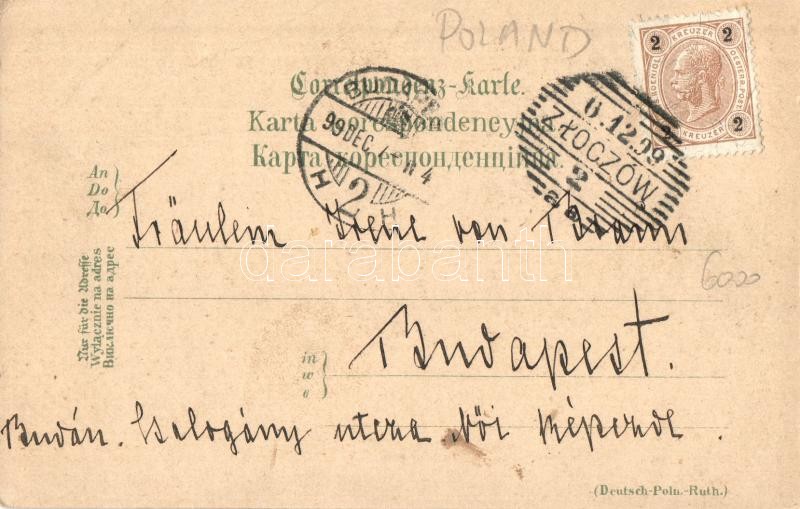 POLAND
2 KREUZER 2
2 KREUZER 2
Correspondenz-Karte.
Karta korespondencyjna.
Карта кореспонденцiйна.
BUDA
99 DEC
2
H H
6.12.99
ZŁOCZÓW
2
An
Do
До
Nur für die Adresse
Wyłącznie na adres
Виключно на адрес
Fräulein Irene von
darabanth
6000
in
w
в
Budapest.
Budán. Csalogány utcza Női Képezde.
(Deutsch-Poln.-Ruth.)